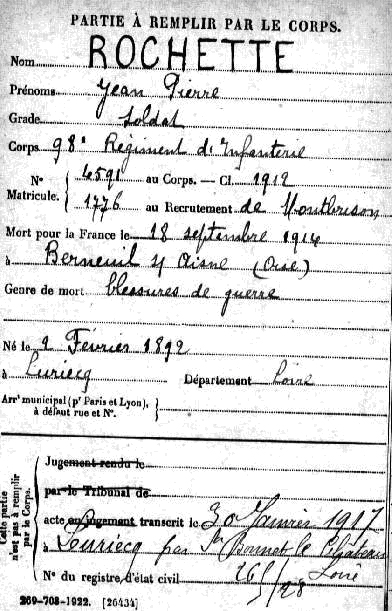 PARTIE À REMPLIR PAR LE CORPS.
Nom ROCHETTE
Prénoms Jean Pierre
Grade Soldat
Corps 98e Régiment d'Infanterie
N° Matricule. { 4591 au Corps. — Cl. 1912
1776 au Recrutement de Montbrison
Mort pour la France le 18 septembre 1914
à Berneuil s/ Aisne (Oise)
Genre de mort blessures de guerre
Né le 2 Février 1892
à Luriecq Département Loire
Arrt municipal (pr Paris et Lyon),
à défaut rue et N°.
Cette partie n'est pas à remplir par le Corps.
Jugement rendu le
par le Tribunal de
acte ou jugement transcrit le 30 Janvier 1917
à Leuriecq par St Bonnet le Château
N° du registre d'état civil 16/28 Loire
269-708-1922. [26434]